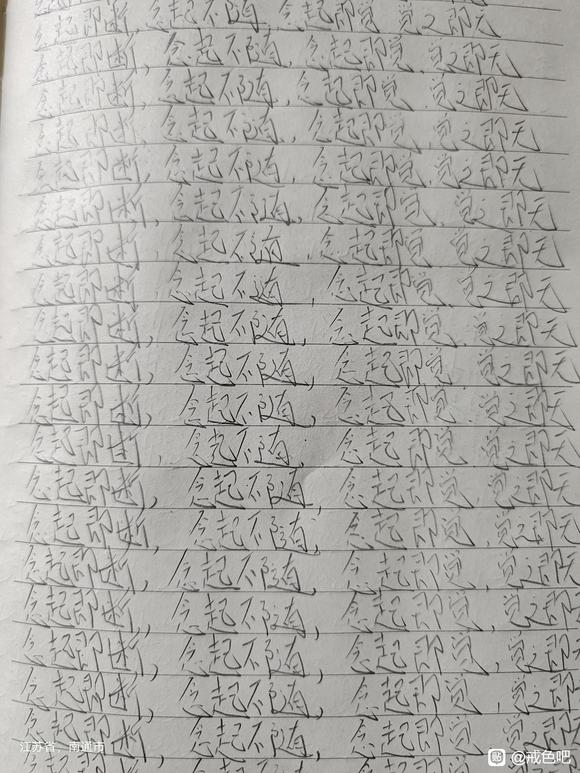 念起即断,念起不随,念起即觉,觉之即无
念起即断,念起不随,念起即觉,觉之即无
念起即断,念起不随,念起即觉,觉之即无
念起即断,念起不随,念起即觉,觉之即无
念起即断,念起不随,念起即觉,觉之即无
念起即断,念起不随,念起即觉,觉之即无
念起即断,念起不随,念起即觉,觉之即无
念起即断,念起不随,念起即觉,觉之即无
念起即断,念起不随,念起即觉,觉之即无
念起即断,念起不随,念起即觉,觉之即无
念起即断,念起不随,念起即觉,觉之即无
念起即断,念起不随,念起即觉,觉之即无
念起即断,念起不随,念起即觉,觉之即无
念起即断,念起不随,念起即觉,觉之即无
念起即断,念起不随,念起即觉,觉之即无
念起即断,念起不随,念起即觉,觉之即无
念起即断,念起不随,念起即觉,觉之即无
念起即断,念起不随,念起即觉,觉之即
念起即断,念起不随,念起即觉,觉之即
江苏省,南通市
贴 @戒色吧